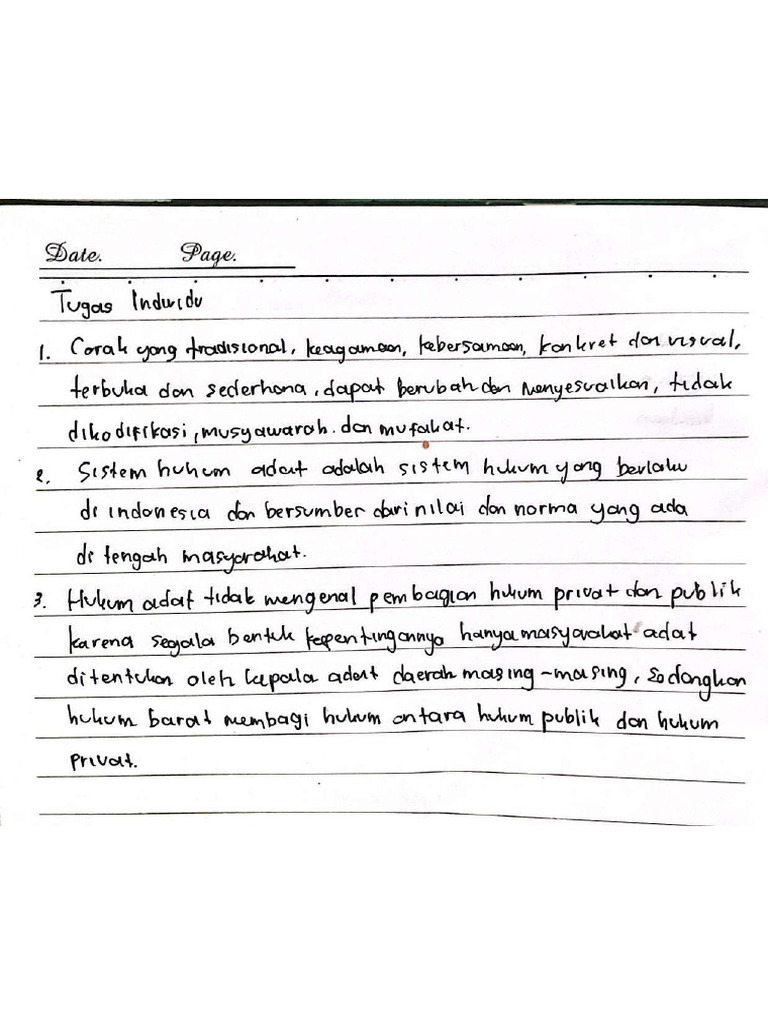 Date. Page.
Tugas Individu
1. Corak yang tradisional, keagamaan, kebersamaan, konkret dan visual,
terbuka dan sederhana, dapat berubah dan menyesuaikan, tidak
dikodifikasi, musyawarah. dan mufakat.
2. Sistem hukum adat adalah sistem hukum yang berlaku
di indonesia dan bersumber dari nilai dan norma yang ada
di tengah masyarakat.
3. Hukum adat tidak mengenal pembagian hukum privat dan publik
karena segala bentuk kepentingannya hanya masyarakat adat
ditentukan oleh kepala adat daerah masing-masing, sedangkan
hukum barat membagi hukum antara hukum publik dan hukum
privat.